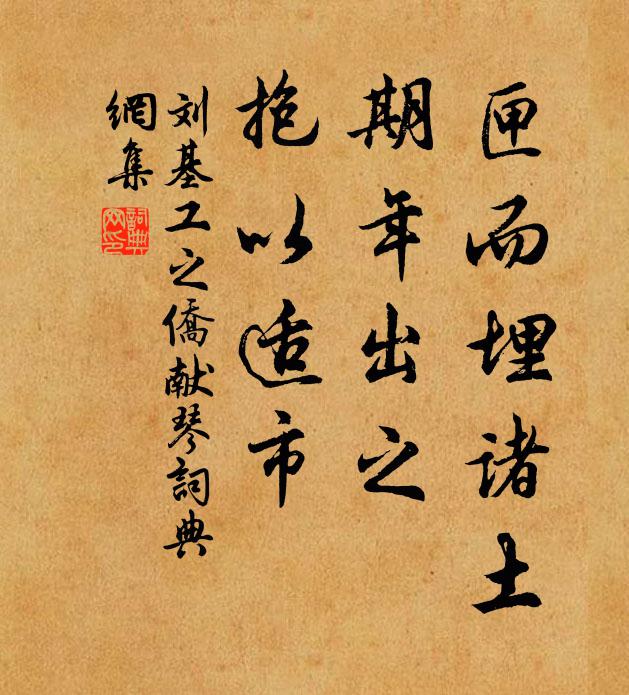 匣而埋诸土
期年出之
抱以适市
刘基工之僑献琴詞典
網集
詞典
网印